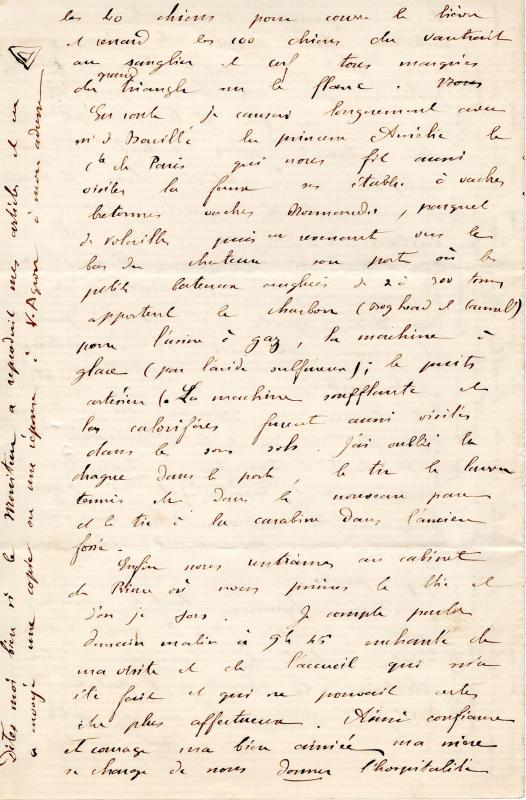 les 60 chiens pour courre le lièvre
et renard les 100 chiens du vautrait
au sanglier et cerf tous marqués
du grand triangle sur le flanc.
En route je causai longuement avec
Mr d la princesse Amélie le
Cte de Paris qui nous fit aussi
visiter la ferme ses étables à vaches
bretonnes vaches Normandes, parquet
de volailles puis en revenant vers le
bas du chateau son port où les
petits bateaux anglais de 2 à 300 tonnes
apportent le charbon (Boghead et Cannel)
pour l'usine à gaz, la machine à
glace (par l'acide sulfureux); le puits
artésien (. La machine soufflante et
les calorifères furent aussi visités
dans le sous sols. J'ai oublié la
drague dans le port, le tir le lawn
tennis etc dans le nouveau parc
et le tir à la carabine dans l'ancien
fossé.
Enfin nous rentrâmes au cabinet
du Prince où nous primes le thé et
d'où je sors. Je compte partir
demain matin à 9h 45 enchanté de
ma visite et de l'accueil qui m'a
été fait et qui ne pouvait certes
être plus affectueux. Ainsi confiance
et courage ma bien aimée, ma mère
se charge de nous donner l'hospitalité
Dites moi bien si le Moniteur a reproduit mes articles et en
a envoyé une copie ou une réponse à V. à mon adresse